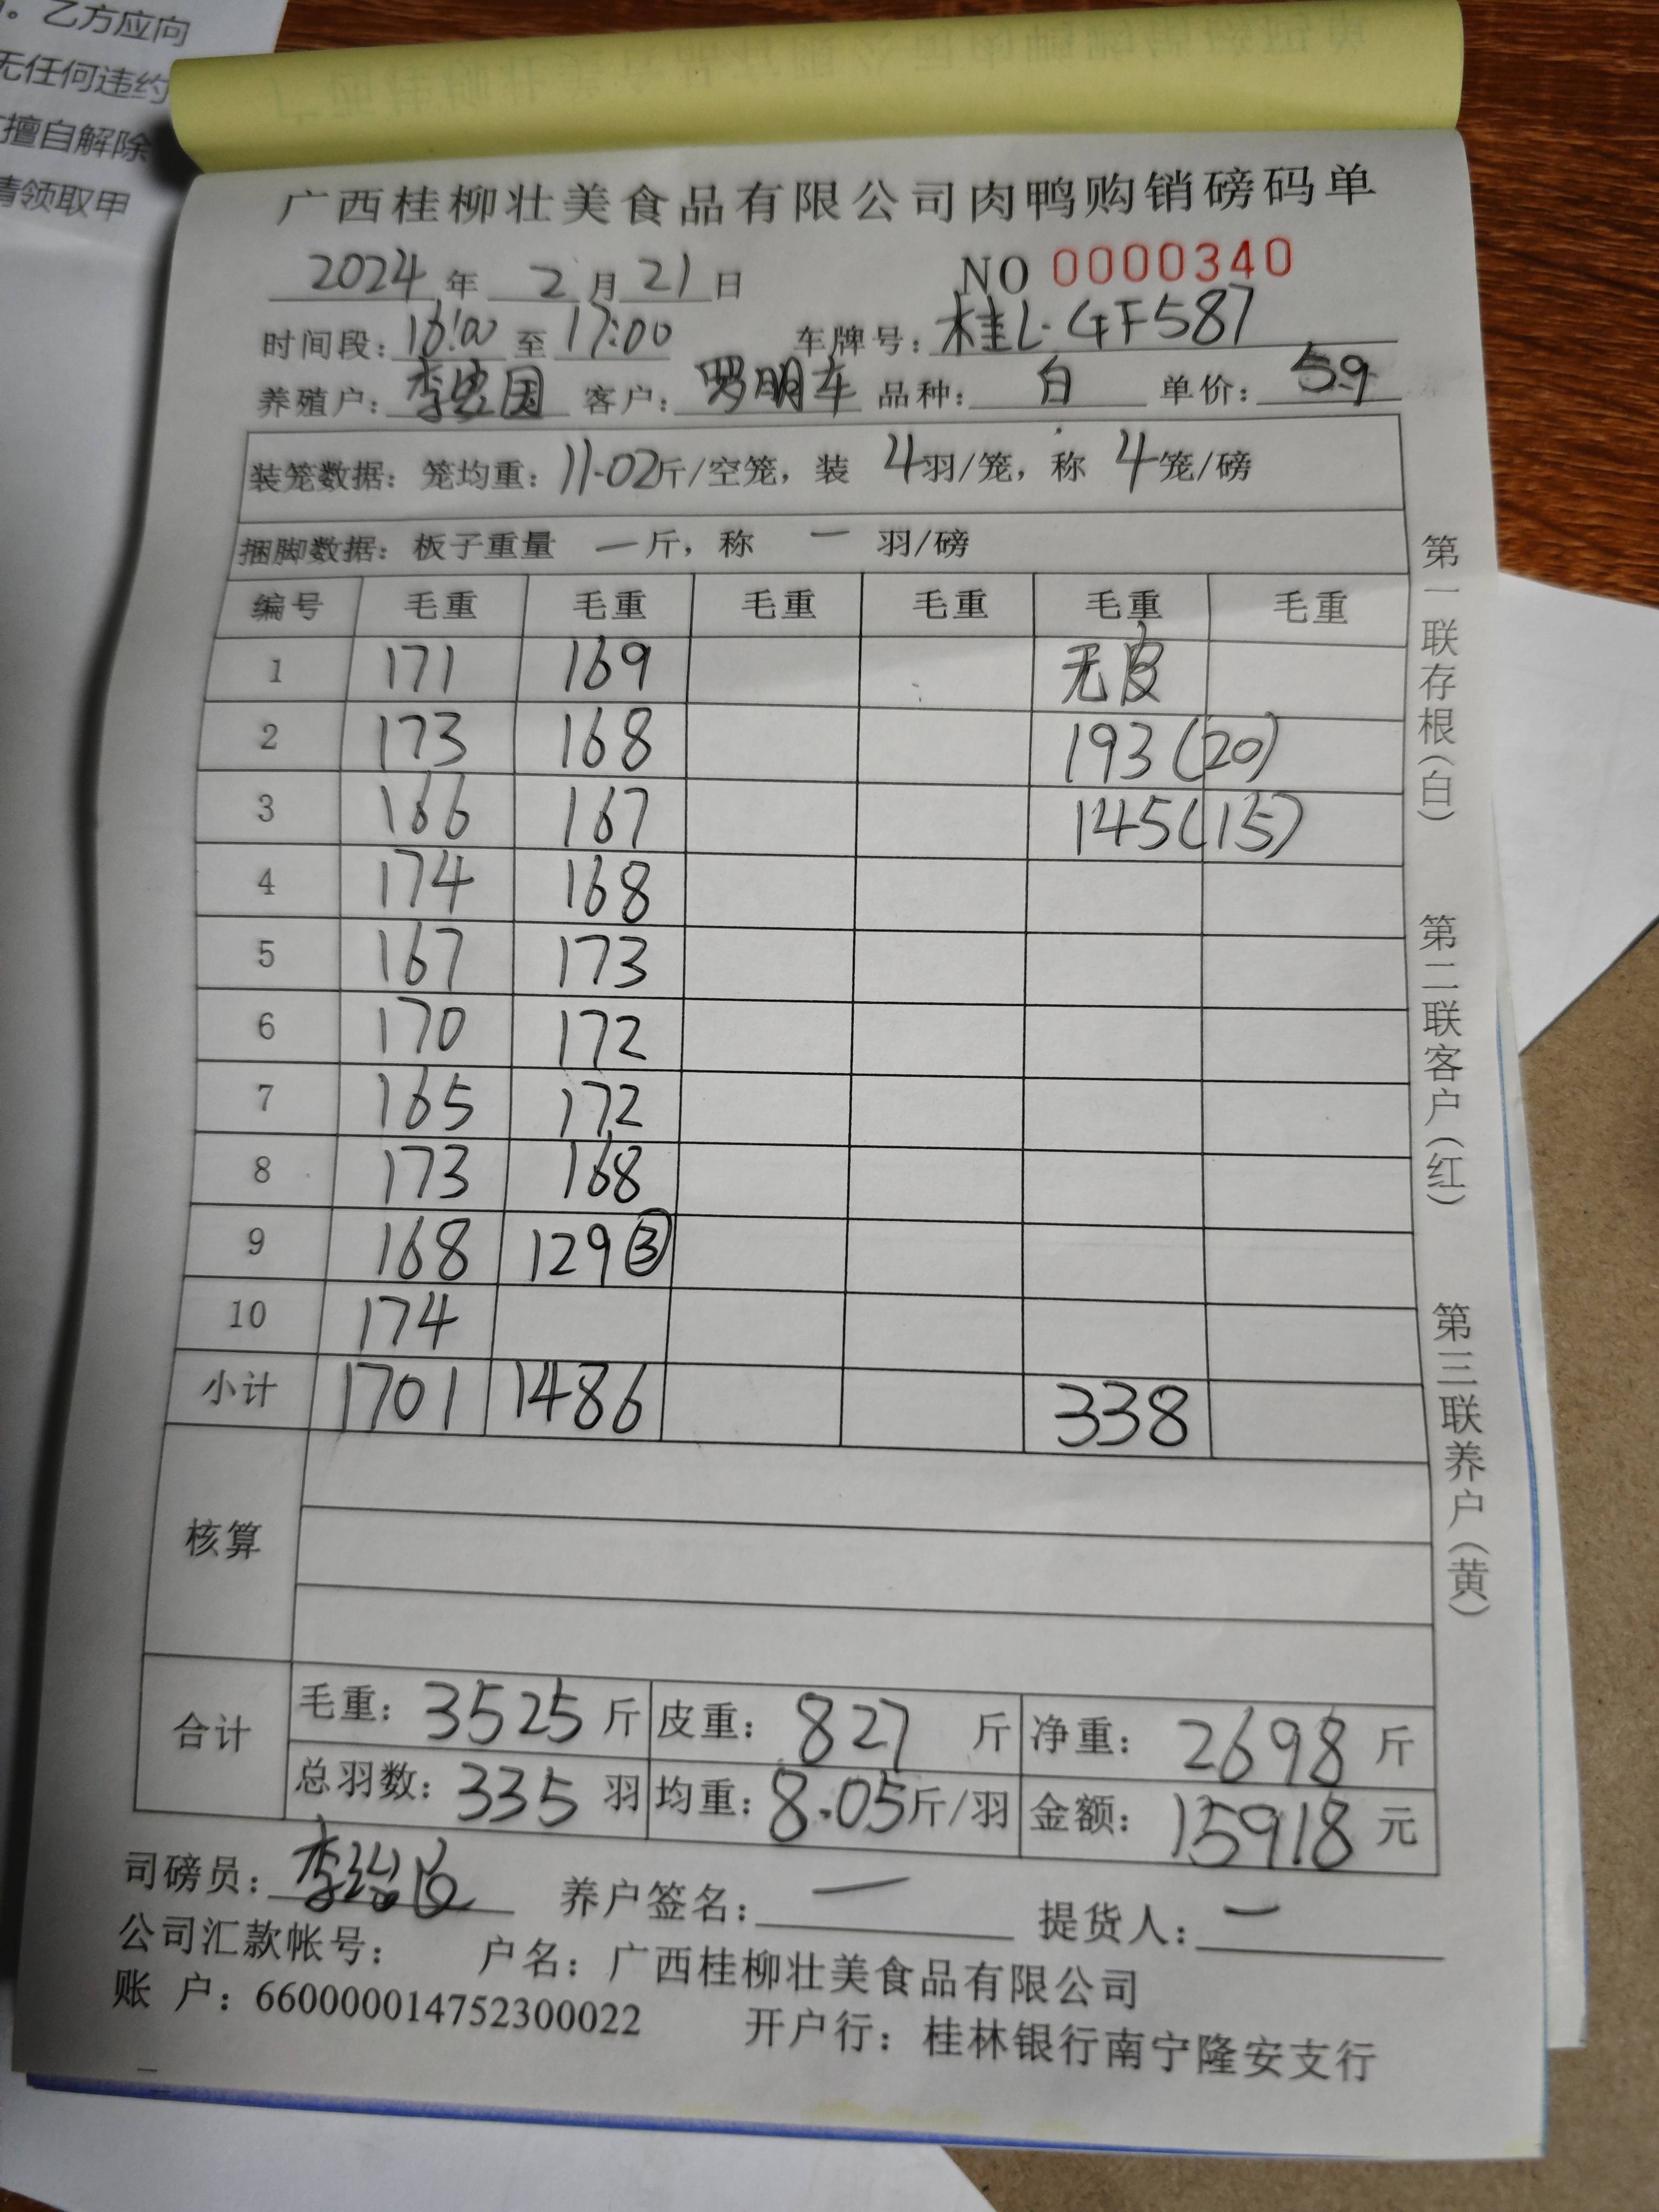 。乙方应向
无任何违约
擅自解除
请领取甲
广西桂柳壮美食品有限公司肉鸭购销磅码单
2024年 2月21日 NO 0000340
时间段：16:00 至 17:00 车牌号：桂L·GF587
养殖户：李忠国 客户：罗明车 品种：白 单价：5.9
装笼数据：笼均重：11.02斤/空笼，装 4羽/笼，称 4笼/磅
捆脚数据：板子重量 一斤，称 一 羽/磅
编号 毛重 毛重 毛重 毛重 毛重 毛重
1 171 169 无皮
2 173 168 193(20)
3 166 167 145(15)
4 174 168
5 167 173
6 170 172
7 165 172
8 173 168
9 168 129③
10 174
小计 1701 1486 338
核算
合计
毛重：3525斤 皮重：827斤 净重：2698斤
总羽数：335羽 均重：8.05斤/羽 金额：15918元
司磅员： 养户签名：一 提货人：一
公司汇款帐号： 户名：广西桂柳壮美食品有限公司
账 户：660000014752300022 开户行：桂林银行南宁隆安支行
第一联存根（白）
第二联客户（红）
第三联养户（黄）